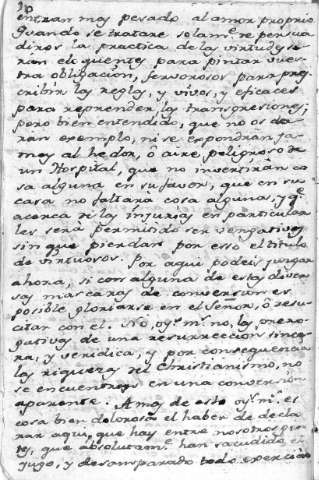 entran muy pesado al amor proprio
Quando se tratare solam.te de persua
diros la practica de las virtudes se
rán eloquentes para pintar vues
tra obligacion, fervorosos para pres
cribir las reglas, y vivos, y eficaces
para reprender las transgresiones;
pero bien entendido, que no os da
rán exemplo, ni se expondrán ja
mas al hedor, ô aire peligroso de
un Hospital, que no invertirán co
sa alguna en su favor, que en su
casa no faltara cosa alguna, y q.e
acerca de las injurias en particular
les será permitido ser vengativos
sin que pierdan por eso el titulo
de virtuosos. Por aqui podeis juzgar
ahora, si con alguna de estas diver
sas mascaras de conversion es
posible gloriarse en el Señor, ô resu
citar con el. No, oy.s m.s no, las prero
gativas de una resurreccion since
ra, y veridica, y por consequencia
las riquezas del Christianismo, no
se encuentran en una conversion
aparente. Amas de esto oy.s m.s es
cosa bien dolorosa el haber de decla
rar aqui, que hay entre nosotros
que absolutam.te han sacudido el
yugo, y desamparado todo exercicio